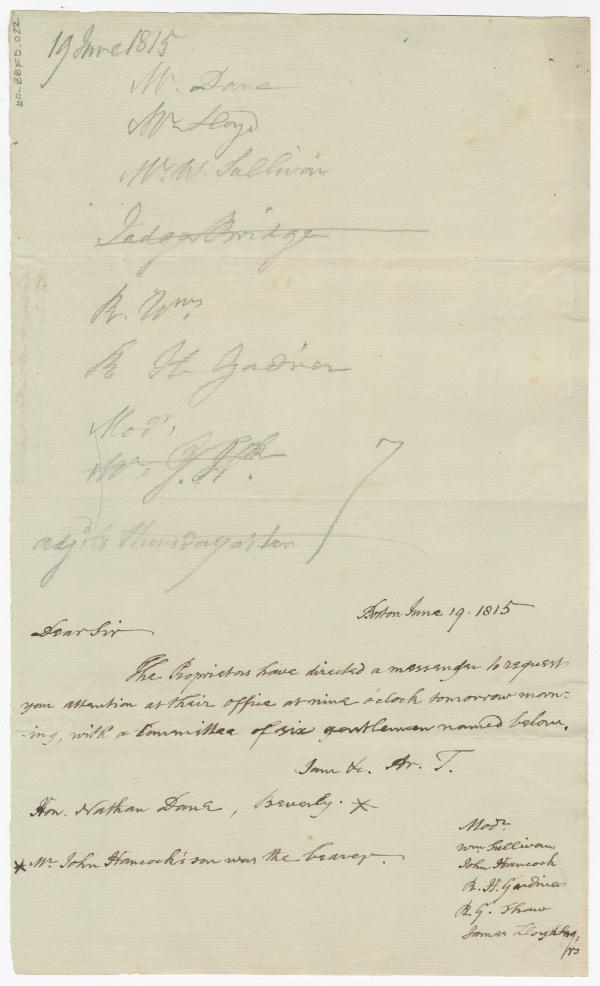 19 June 1815
Mr. Dane
Mr. Lloyd
Mr. W. Sullivan
Judge Bridge
R. Wms
R H Gardiner
Modr,
Mr.
adjd to thursday at ten
Boston June 19. 1815
Dear Sir
The Proprietors have directed a messenger to request
your attention at their office at nine o'clock tomorrow morn-
-ing, with a Committee of six gentlemen named below.
I am &c. Ar. T.
Hon. Nathan Dane, Beverly. *
* Mr John Hancock's son was the bearer.
Modr.
Wm Sullivan
John Hancock
R. H. Gardiner
R. G. Shaw
James Lloyd Esq,